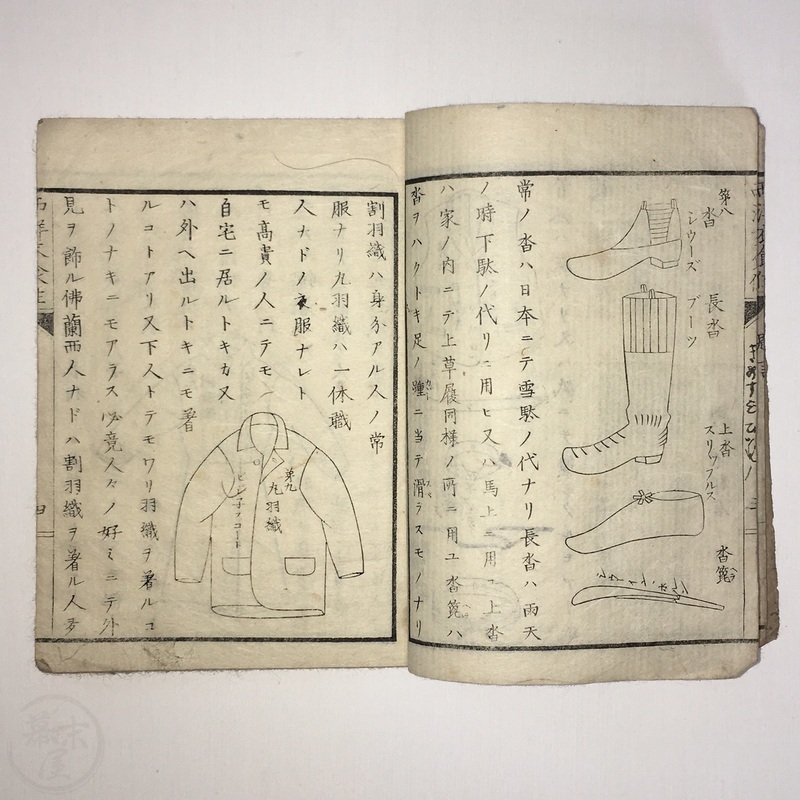 第八
沓
シウーズ
長沓
ブーツ
上沓
スリップルス
沓箆
ヘラ
常ノ沓ハ日本ニテ雪駄ノ代ナリ長沓ハ雨天
ノ時下駄ノ代リニ用ヒ又ハ馬上ニ用ユ上沓
ハ家ノ内ニテ上草履同様ノ所ニ用ユ沓箆ハ
沓ヲハクトキ足ノ踵ニ当テ滑ラスモノナリ
割羽織ハ身分アル人ノ常
服ナリ丸羽織ハ一休職
人ナドノ衣服ナレト
モ高貴ノ人ニテモ
自宅ニ居ルトキカ又
ハ外ヘ出ルトキニモ著
ルコトアリ又下人トテモワリ羽織ヲ著ルコ
トノナキニモアラス必竟人々ノ好ミニテ外
見ヲ飾ル佛蘭西人ナドハ割羽織ヲ著ル人多
第九
丸羽織
ビジ子スコート
四
幕末屋